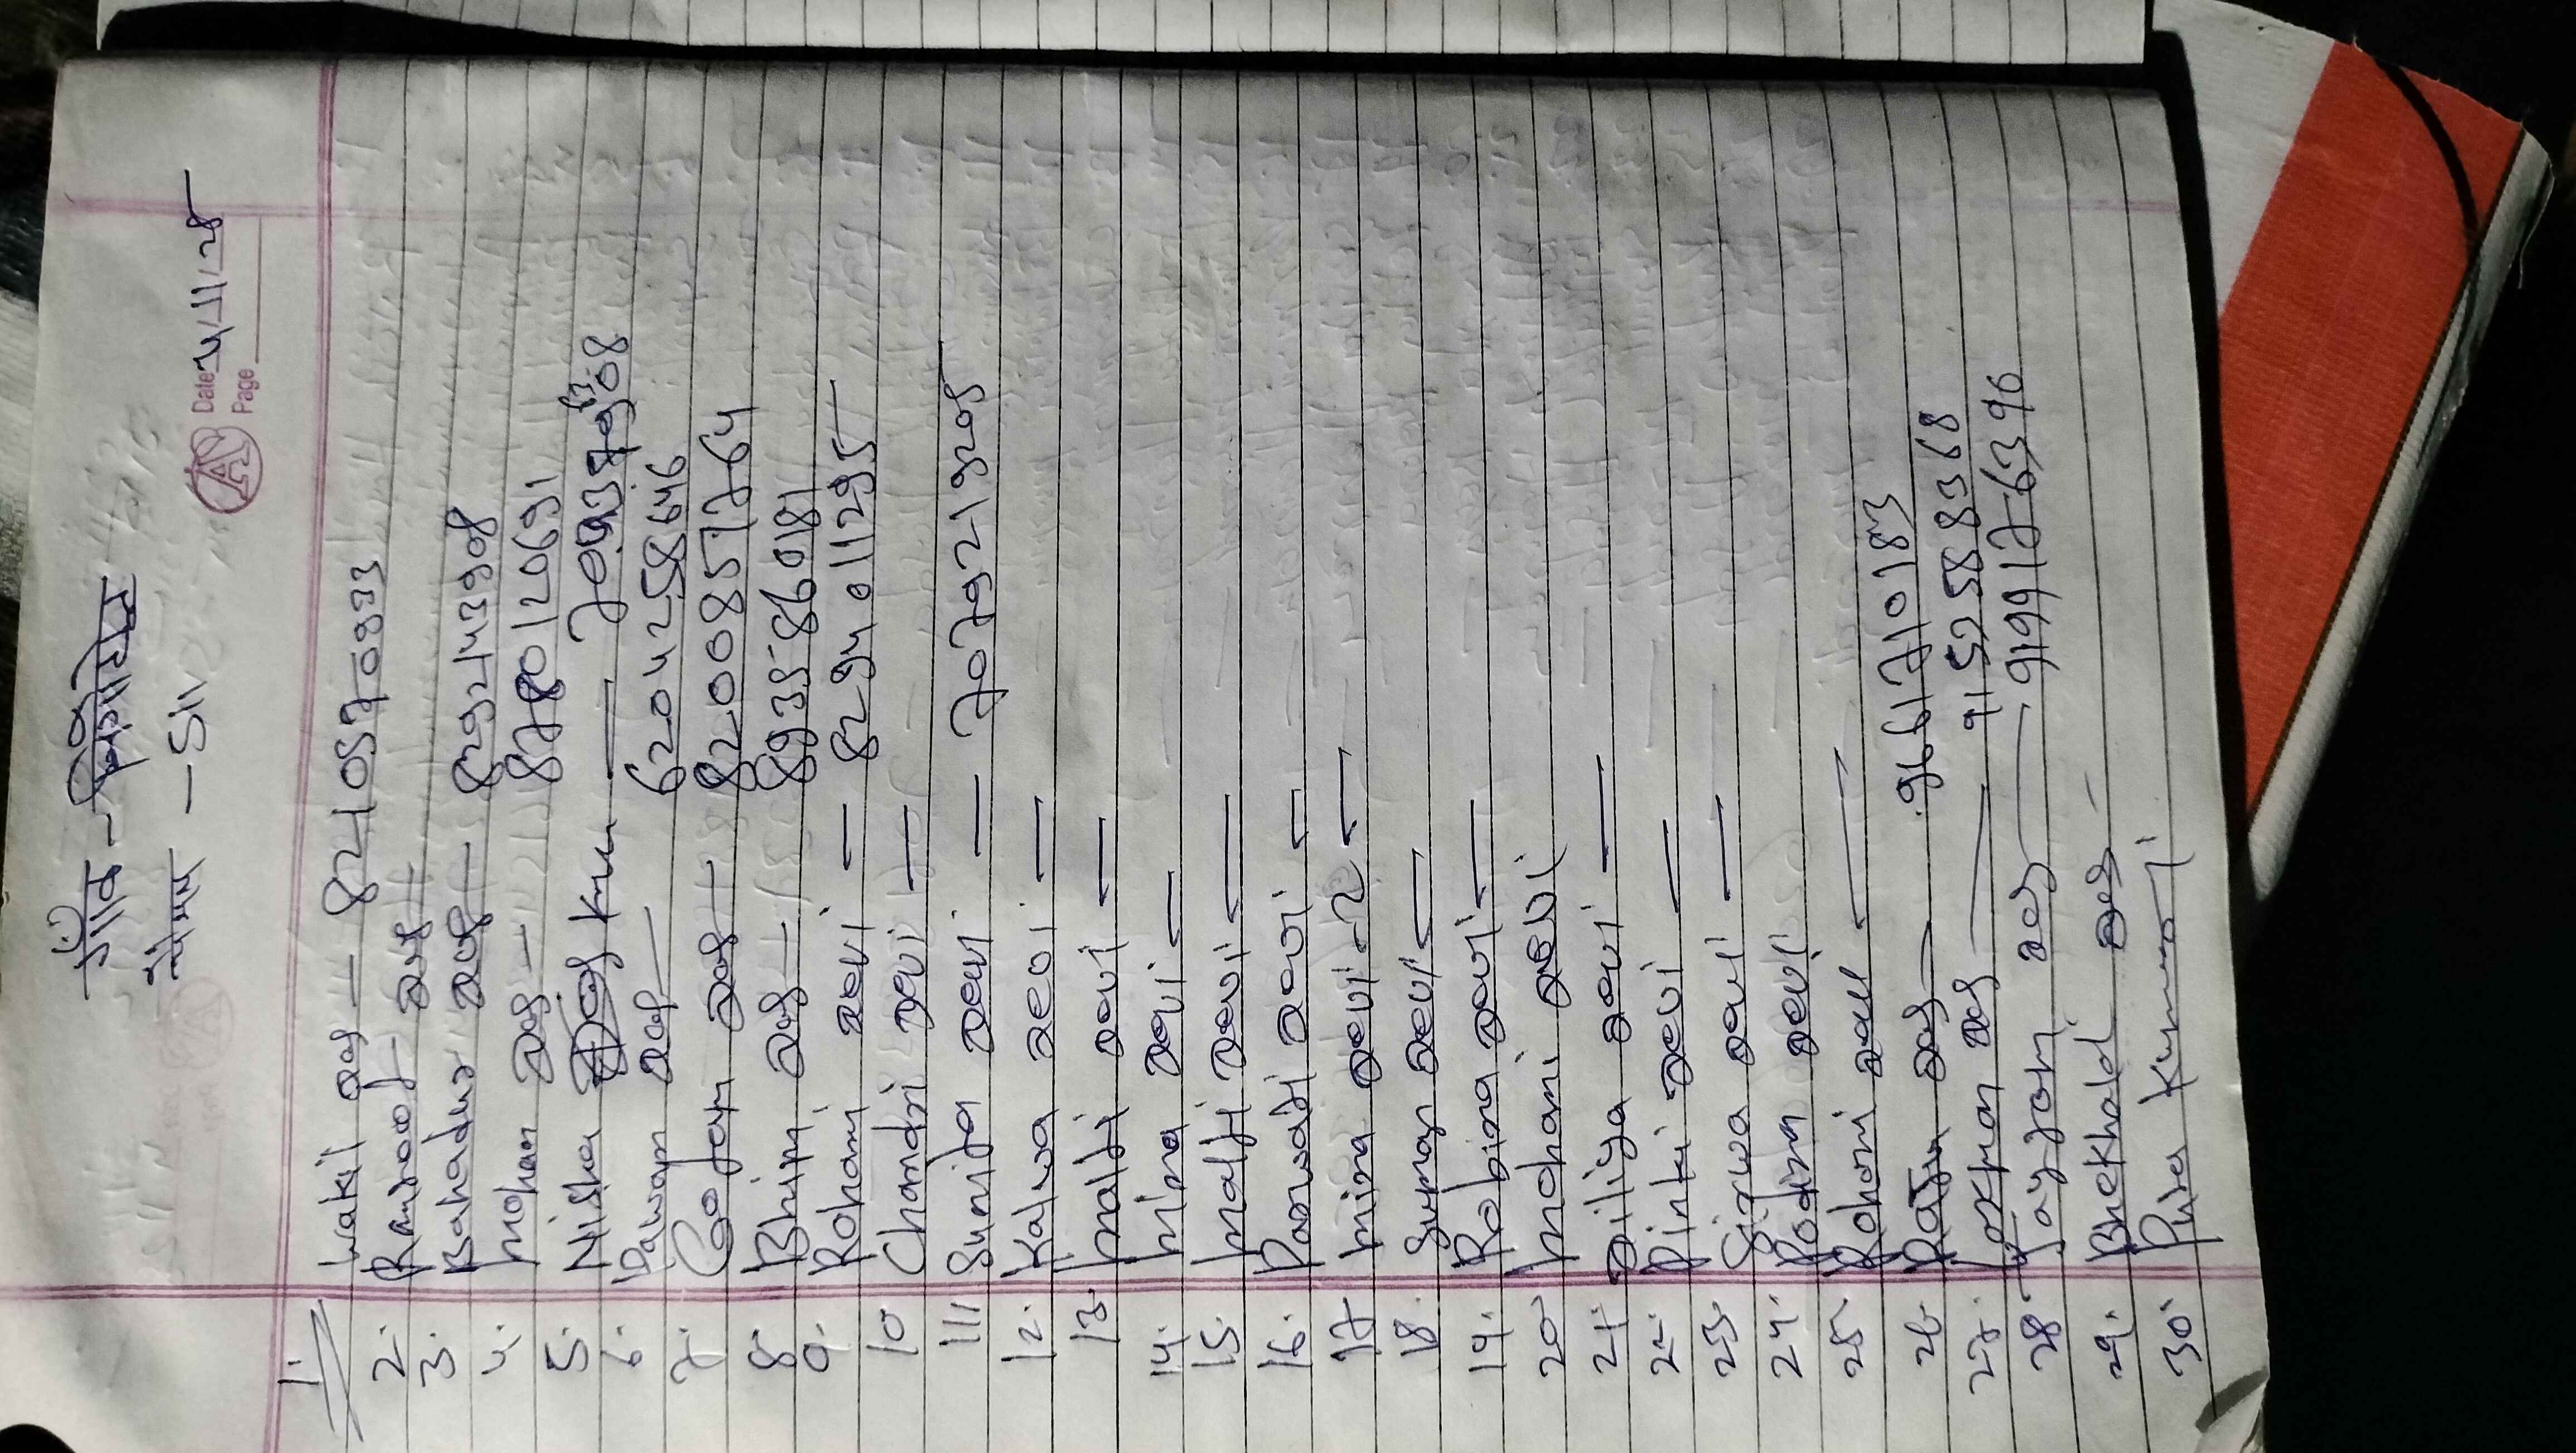 गाँव -
Date 4/11/25
Page
1. Wakil das — 8210570933
2. Ramroop das —
3. Bahadur das — 8292143908
4. Mohan das — 8780120691
5. Nisha Kmu —
6. Pawan das — 6204258646
7. Gofan das — 8200851764
8. Bhim das — 8935860181
9. Rohani devi — 8294011295
10 Chandni devi —
11 Sunita devi — 7079219205
12. Kalwa devi —
13. malti devi —
14. mina devi —
15. malti devi —
16. Parwati devi —
17 mina devi —
18. Suman devi —
19. Robina devi —
20 mohani devi
21. Diliya devi —
22. Pinki devi —
23. Sirwa devi —
24. Rodina devi
25. Rohani
26. Raju das — 9661710183
27. Loxman das — 9152588368
28. Jayram das — 9199176396
29. Bhekhald das —
30. Puja Kumari